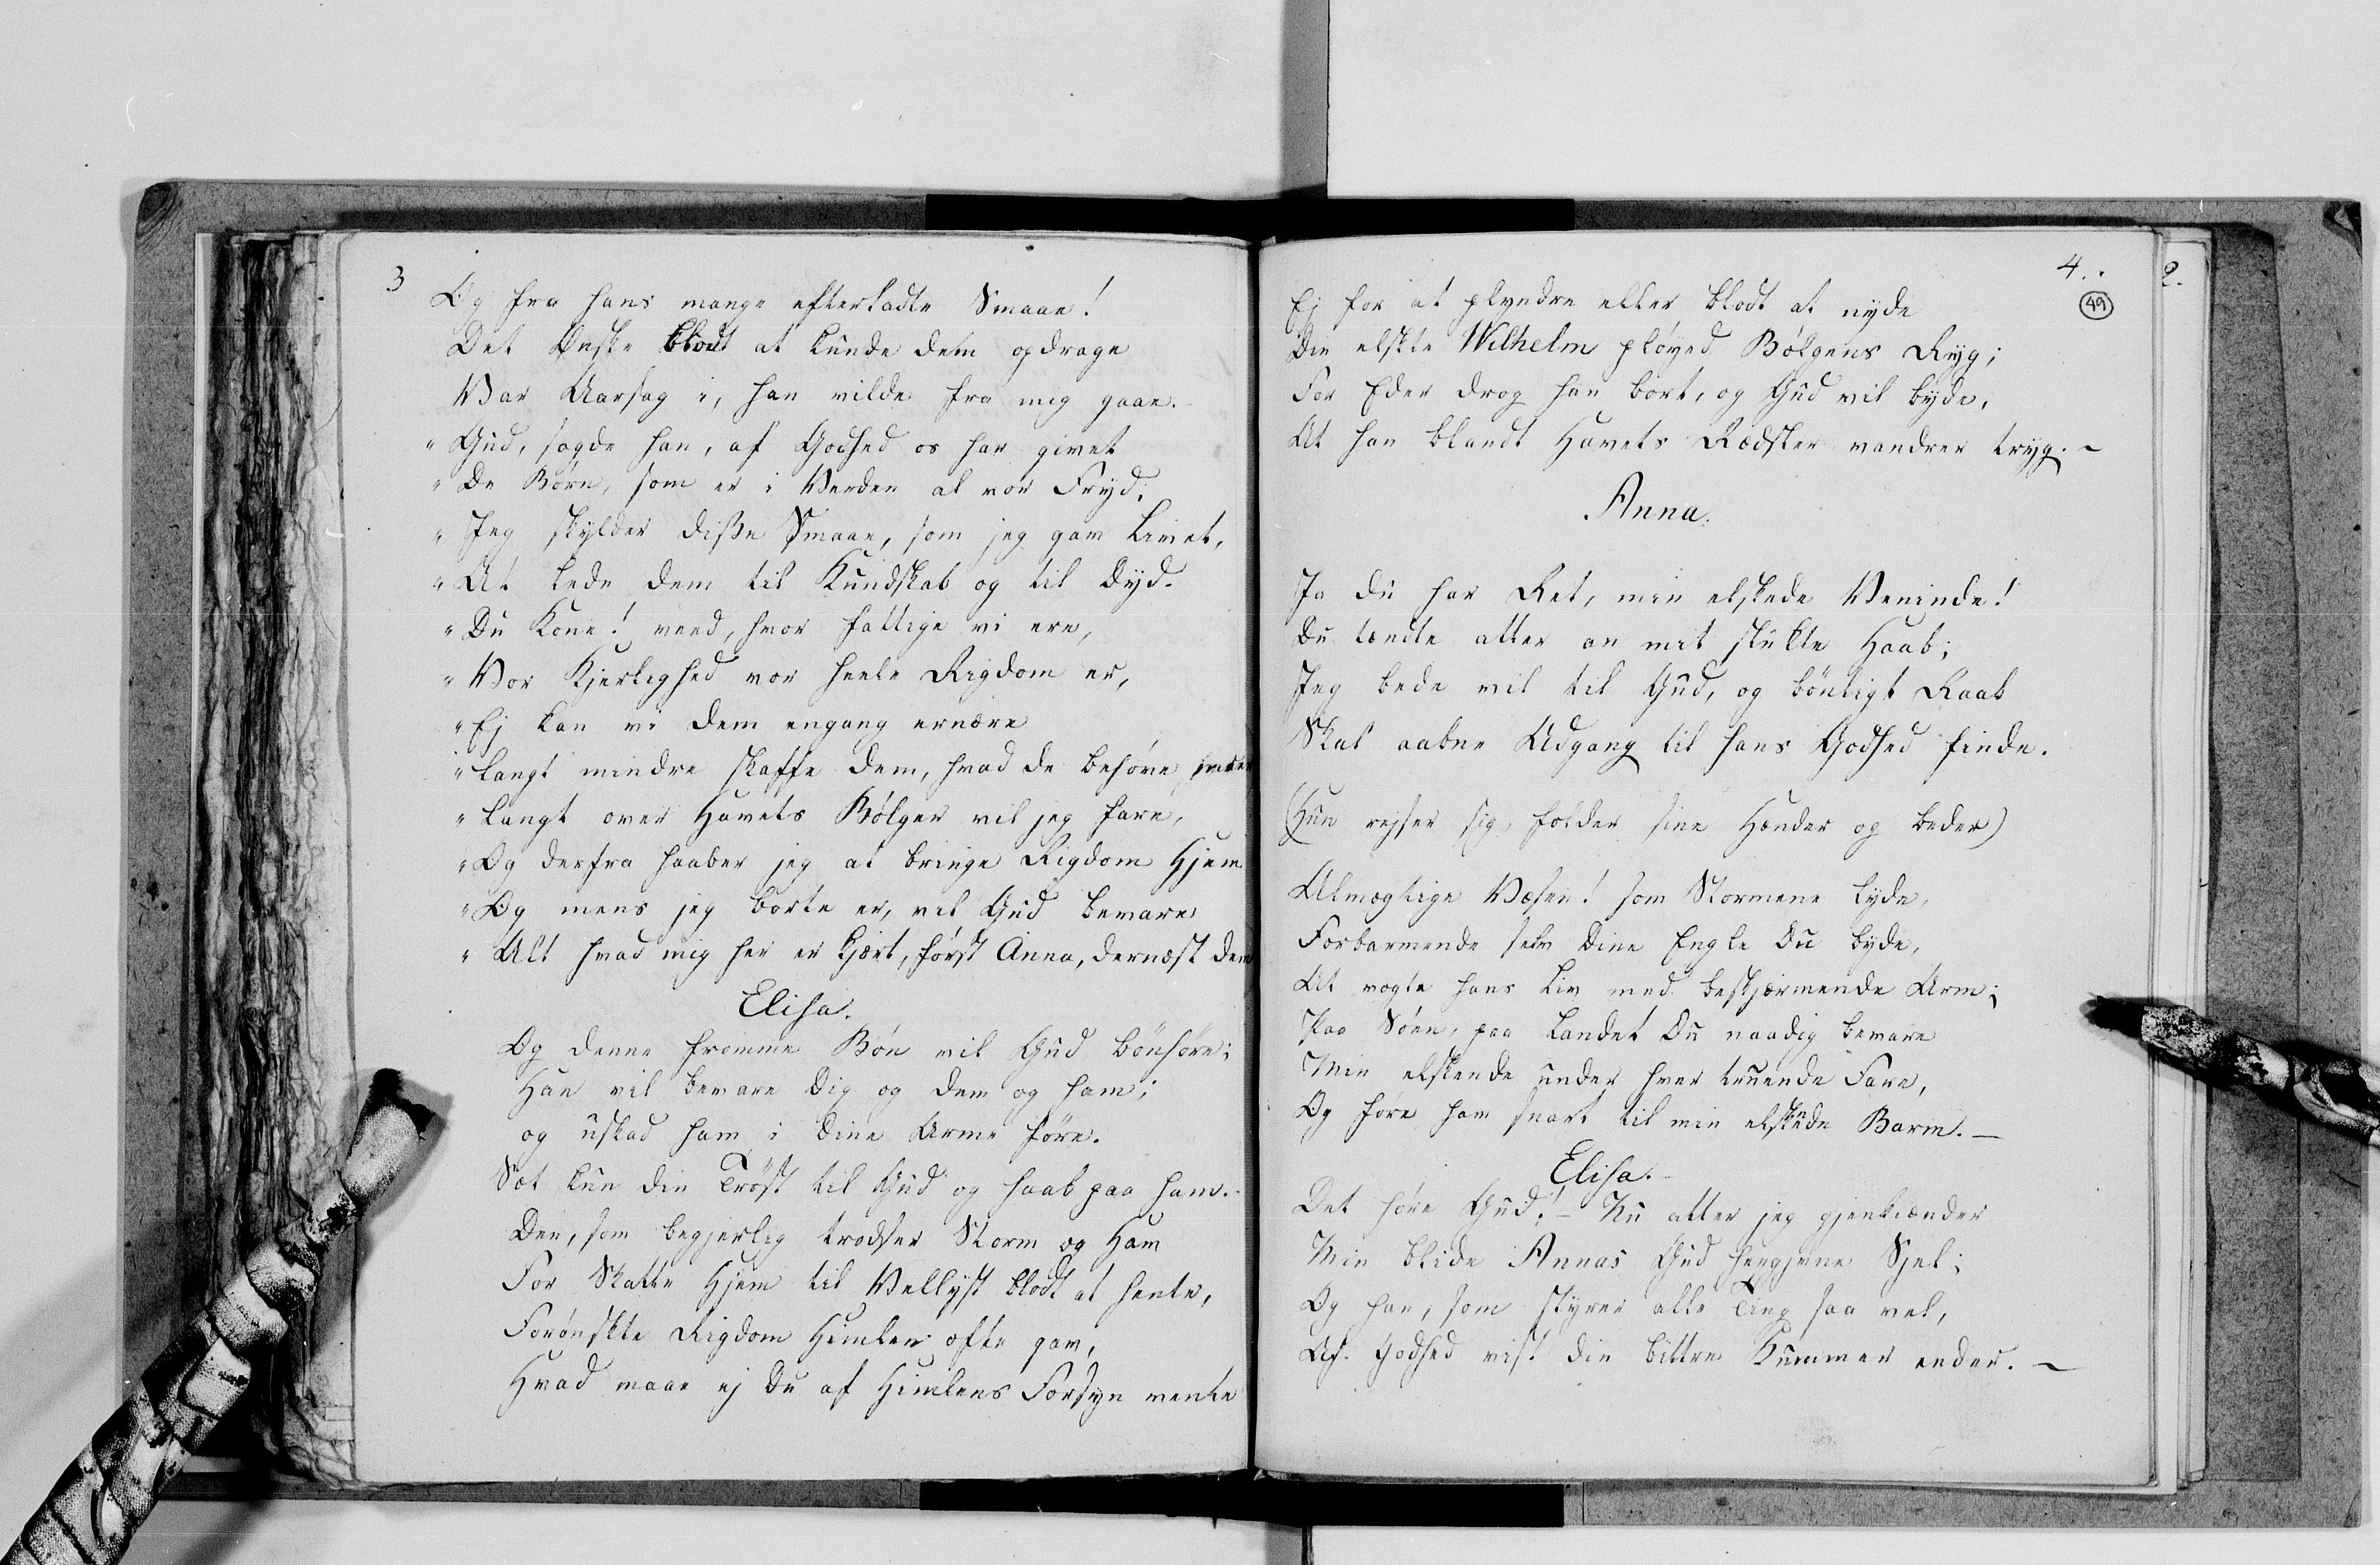 3
Og fra hans mange efterladte Smaae!
Det Ønske blodt at kunde dem opdrage
Var Aarsag i, han vilde fra mig gaae.
"Gud, sagde han, af Godhed os har givet
"De Børn, som er i Verden al vor Fryd;
"Jeg skylder disse Smaae, som jeg gav Livet,
"At lede dem til Kundskab og til Dyd.
"Du Kone! veed, hvor fattige vi ere,
"Vor Kjerlighed vor heele Rigdom er,
"Ej kan vi dem engang ernære
"Langt mindre skaffe dem, hvad de behøve
"Langt over Havets Bølger vil jeg fare,
"Og derfra haaber jeg at bringe Rigdom Hjem
"Og mens jeg borte er, vil Gud bevare
"Alt hvad mig her er kjært, først Anna, dernæst dem
Elisa.
Og denne fromme Bøn vil Gud bönhøre;
Han vil bevare Dig og dem og ham;
og uskad ham i dine Arme føre.
Sæt kun din Tröst til Gud og haab paa ham.
Den, som begjerlig trodser Storm og Hav
For Skatte Hjem til Vellyst blodt at hente,
Forønskte Rigdom Himlen ofte gav,
Hvad maae ej Du af Himlens Forsyn vente
4.
49
2.
Ej for at plyndre eller blodt at nyde
Din elskte Wilhelm pløyed Bølgens Ryg;
For Eder drog han bort, og Gud vil byde,
At han blandt Havets Rædsler vandrer tryg. –
Anna.
Ja du har Ret, min elskede Veninde!
Du tændte atter an mit slukte Haab;
Jeg bede vil til Gud, og bönligt Raab
Skal aabne Adgang til hans Godhed finde.
(Hun rejser sig, folder sine Hænder og beder)
Almægtige Væsen! som Stormene lyde,
Forbarmende selv Dine Engle Du byde,
At vogte hans Liv med beskjærmende Arm;
Paa Søen, paa Landet Du naadig bevare
Min elskende under hver truende Fare,
Og føre ham snart til min elskende Barm. –
Elisa. –
Det høre Gud! – Nu atter jeg gjenkiænder
Min blide Annas Gud hengivne Sjel;
Og han, som styrer alle Ting saa vel,
Af Godhed vist din bittre Kummer ender. –